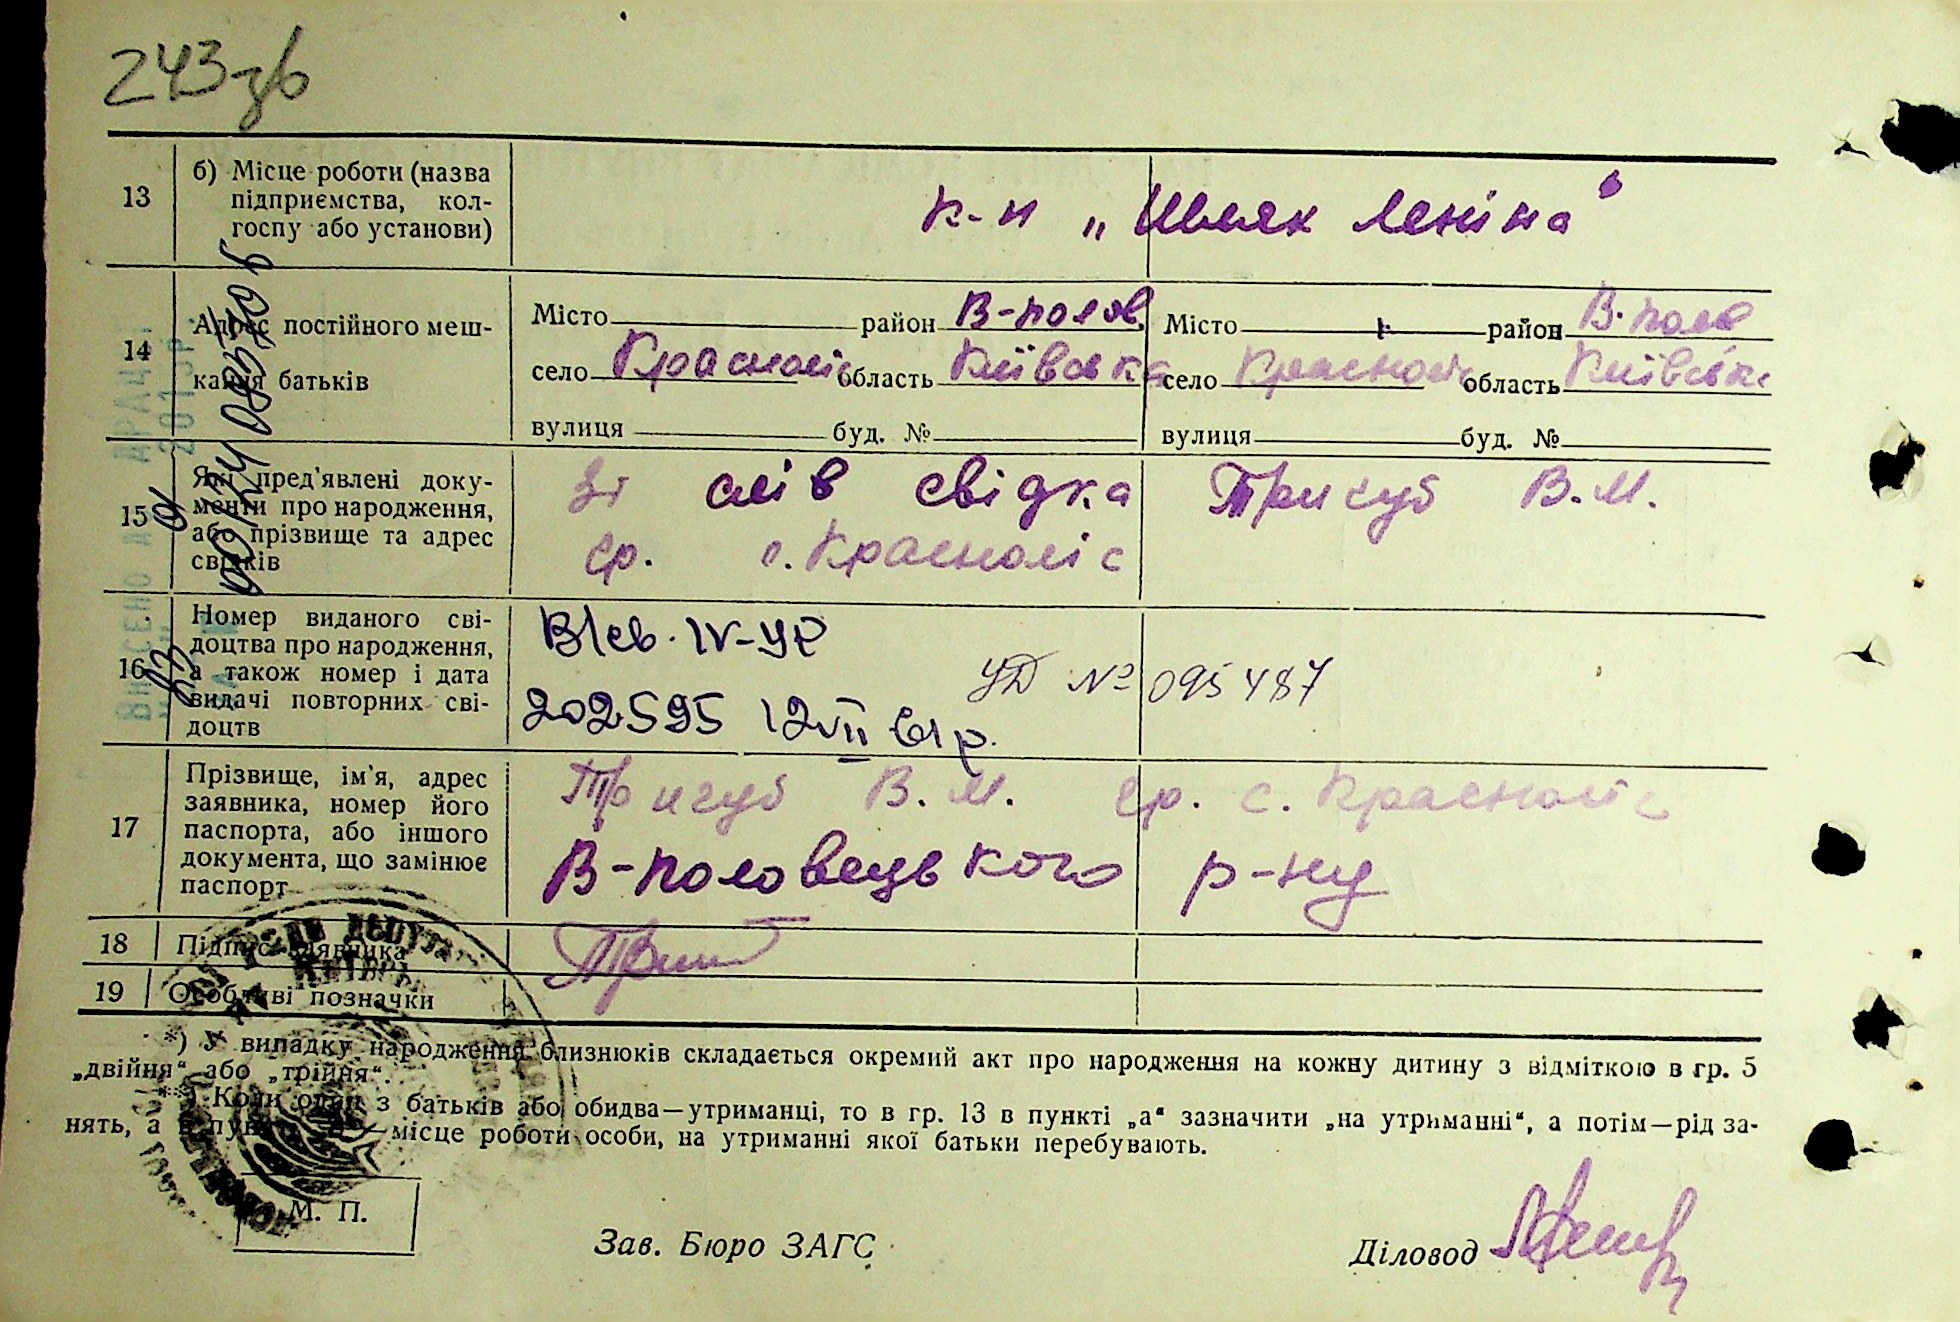 243зв
13
б) Місце роботи (назва
підприємства, кол-
госпу або установи)
к-п „Шлях Леніна"
14
Адрес постійного меш-
кання батьків
Місто район В-полов.
село Красноліс область Київська
вулиця буд. №
Місто район В-поло
село Красноліс область Київськ
вулиця буд. №
15
Які пред'явлені доку-
менти про народження,
або прізвище та адрес
свідків
Зі слів свідка Тригуб В.М.
гр. с. Красноліс
16
Номер виданого сві-
доцтва про народження,
а також номер і дата
видачі повторних сві-
доцтв
В/св. IV-УР
202595 12 VII 61 р.
УД № 095487
17
Прізвище, ім'я, адрес
заявника, номер його
паспорта, або іншого
документа, що замінює
паспорт
Тригуб В.М. гр. с. Красноліс
В-Половецького р-ну
18
Підпис заявника
19
Особливі позначки
*) У випадку народження близнюків складається окремий акт про народження на кожну дитину з відміткою в гр. 5
„двійня" або „трійня".
**) Коли один з батьків або обидва—утриманці, то в гр. 13 в пункті „а" зазначити „на утриманні", а потім—рід за-
нять, а в пункті —місце роботи особи, на утриманні якої батьки перебувають.
М. П.
Зав. Бюро ЗАГС
Діловод